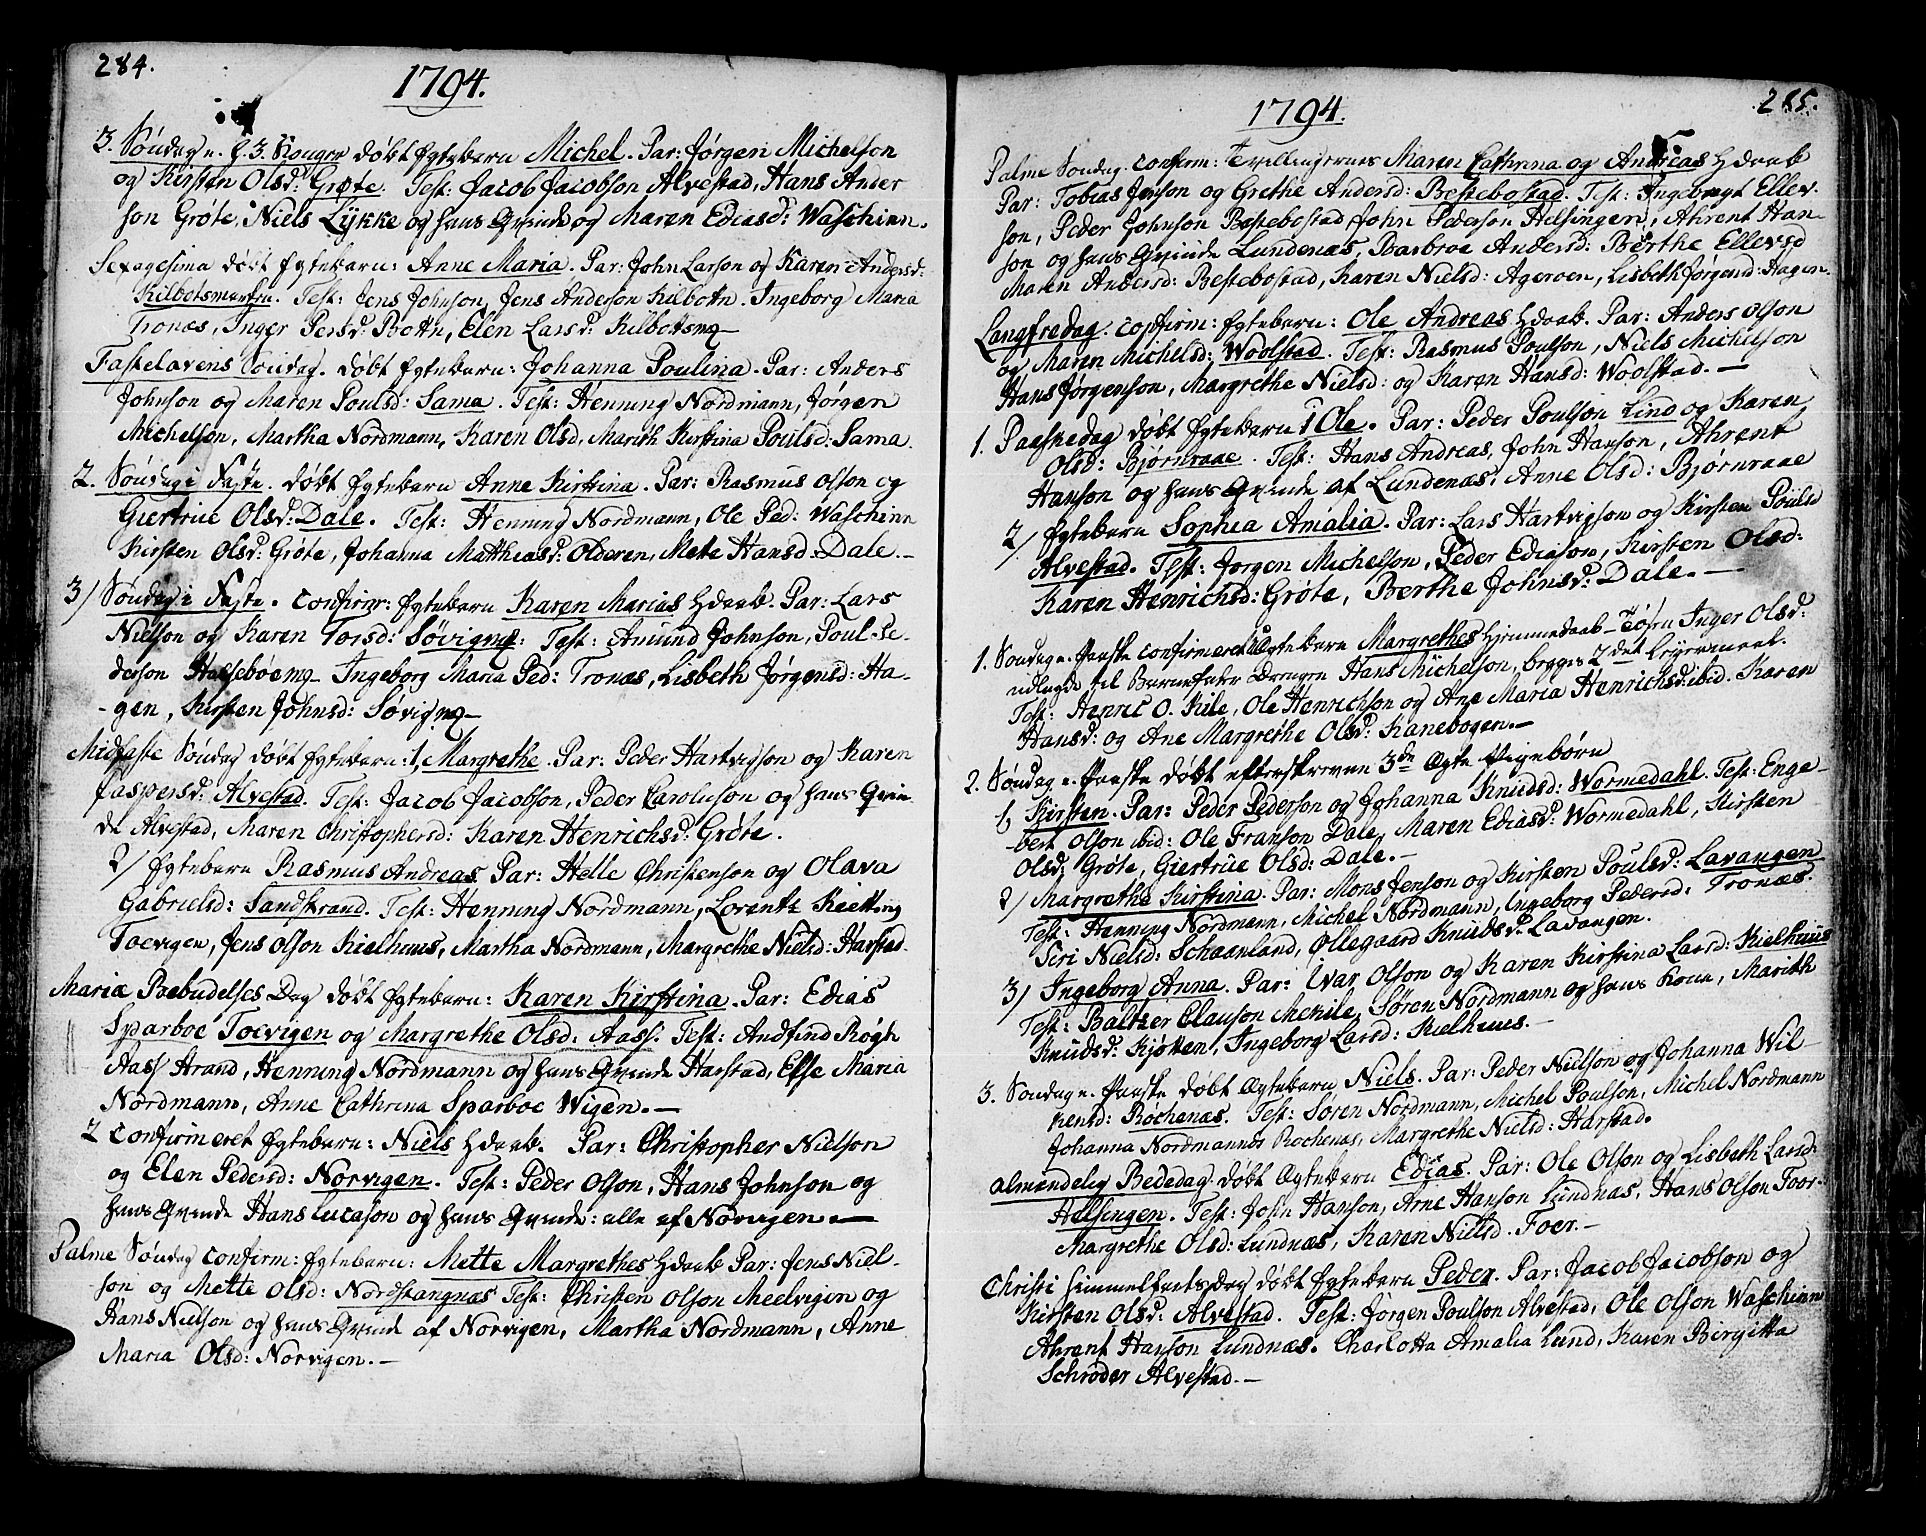 284.
1794.
3. Søndag e. H. 3. Konger døbt Ægtebarn Michel. Par: Jørgen Michelson
og Kirsten Olsd: Grøte. Test: Jacob Jacobson Alvestad, Hans Ander
son Grøte, Niels Lÿkke og hans Qvinde og Maren Ediasd: Waschinn.
Sexagesima døbt Ægtebarn: Anne Maria. Par: John Larson og Karen Andersd:
Kilbotsmarken. Test: Jens Johnson, Jens Anderson Kilbotn. Ingeborg Maria
Tronæs, Inger Persd: Botn, Elen Larsd: Kilbotsmg
Fastelavens Søndag. døbt Ægtebarn: Johanna Poulina. Par: Anders
Johnson og Maren Poulsd: Sama. Test: Henning Nordmann, Jørgen
Michelson, Martha Nordmann, Karen Olsd, Marith Kirstina Poulsd: Sama.
2. Søndag i Faste. døbt Ægtebarn Anne Kirstina. Par: Rasmus Olson og
Giertrue Olsd: Dale. Test: Henning Nordmann, Ole Ped: Waschinn
Kirsten Olsd: Grøte, Johanna Matthiasd: Olderen, Mete Hansd: Dale.
3) Søndag i Faste. Confirm: Ægtebarn Karen Marias Hdaab. Par: Lars
Nielson og Karen Torsd: Søvigmg: Test: Amund Johnson, Poul Pe-
derson Halsebøemg Ingeborg Maria Ped: Tronæs, Lisbeth Jørgensd: Ha-
-gen, Kirsten Johnsd: Søvigmg
Midfaste Søndag døbt Ægtebarn: 1, Margrethe. Par: Peder Hartvigson og Karen
Jaspersd: Alvestad. Test: Jacob Jacobson, Peder Caroluson og hans Qvin
de Alvestad, Maren Christophersd: Karen Henrichsd: Grøte.
2) Ægtebarn Rasmus Andreas Par: Helle Christenson og Olava
Gabrielsd: Sandstrand. Test: Henning Nordmann, Lorentz Kietting
Toevigen, Jens Olson Kielhuus, Martha Nordmann, Margrethe Nielsd: Harstad.
Mariæ Bebudelses Dag døbt Ægtebarn: Karen Kirstina. Par: Edias
Sparboe Toevigen og Margrethe Olsd: Aass. Test: Andfind Rogh
Aass Strand, Henning Nordmann og hans Qvinde Harstad, Else Maria
Nordmann, Anne Cathrina Sparboe Wigen.
2 Confirmeret Ægtebarn: Niels Hdaab. Par: Christopher Nielson
og Elen Pedersd: Norvigen. Test: Peder Olson, Hans Johnson og
hans Qvinde Hans Lucason og hans Qvinde: alle af Norvigen.
Palme Søndag Confirm: Ægtebarn: Mette Margrethes Hdaab Par: Jens Niel-
son og Mette Olsd: Nordstangnæs Test: Christen Olson Meelvigen og
Hans Nielson og hans Qvinde af Norvigen, Martha Nordmann, Anne
Maria Olsd: Norvigen.
285.
1794.
Palme Søndag. Confirm: Tvillingernes Maren Cathrina og Andreas Hdaab
Par: Tobias Jenson og Grethe Andersd: Bestebostad. Test: Ingebregt Ellev-
son, Peder Johnson Bestebostad John Pederson Helsingen, Ahrent Han-
son og hans Qvinde Lundenæs, Barbroe Andersd: Berthe Ellevsd
Maren Andersd: Bestebostad, Karen Nielsd: Ageroen, Lisbeth Jørgensd: Hagen.
Langfredag. Confirm: Ægtebarn: Ole Andreas Hdaab. Par: Anders Olson
og Maren Michelsd: Woolstad. Test: Rasmus Poulson, Niels Michelson
Hans Jørgenson, Margrethe Nielsd: og Karen Hansd: Woolstad.
1. Paaskedag døbt Ægtebarn 1 Ole. Par: Peder Poulson Lind og Karen
Olsd: Bjørnraae. Test: Hans Andreas, John Hanson, Ahrent
Hanson og hans Qvinde af Lundenæs. Anne Olsd: Bjørnraae
2) Ægtebarn Sophia Amalia. Par: Lars Hartvigson og Kirsten Poulsd
Alvestad. Test: Jørgen Michelson, Peder Ediason, Kirsten Olsd:
Karen Henrichsd: Grøte, Berthe Johnsd: Dale.
1. Søndag e. Paaske Confirmeret Uægtebarn Margrethes Hjemmedaab Tøsen Inger Olsd:
udlagde til Barnefader Drengen Hans Michelson, begges 2det Leyermaal.
Test: Henric O. Kile, Ole Henrichson og Ane Maria Henrichsd: ibid. Karen
Hansd: og Ane Margrethe Olsd: Kanebogen.
2. Søndag e. Paaske døbt efterskrevne 3de Ægte Pigebørn
1, Kirsten. Par: Peder Pederson og Johanna Knudsd: Wormedahl. Test: Enge-
-bert Olson ibid: Ole Franson Dale, Maren Ediasd: Wormedahl, Kirsten
Olsd: Grøte, Giertrue Olsd: Dale.
2) Margretha Kirstina. Par: Mons Jenson og Kirsten Poulsd: Lavangen
Test: Henning Nordmann, Michel Nordmann, Ingeborg Pedersd: Tronæs.
Siri Nielsd: Schaanland, Ollegaard Knudsd: Lavangen.
3) Ingeborg Anna. Par: Ivar Olson og Karen Kirstina Larsd: Kielhuus
Test: Baltzer Clauson Mekile, Søren Nordmann og hans Kone, Marith
Knudsd: Kjøtten, Ingeborg Larsd: Kielhuus.
3. Søndag e. Paaske døbt Ægtebarn Niels. Par: Peder Nielson og Johanna Wil-
kensd: Rochenæs. Test: Søren Nordmann, Michel Poulson, Michel Nordmann
Johanna Nordmannds Rochenæs, Margrethe Nielsd: Harstad.
Almendelig Bededag. døbt Ægtebarn Edias. Par: Ole Olson og Lisbeth Larsd:
Helsingen. Test: John Hanson, Arne Hanson Lundnæs, Hans Olson Foer.
Margrethe Olsd: Lundnæs, Karen Nielsd. Foer.
Christi Himmelfartsdag døbt Ægtebarn Peder. Par: Jacob Jacobson og
Kirsten Olsd: Alvestad. Test: Jørgen Poulson Alvestad, Ole Olson Waschinn
Ahrent Hanson Lundnæs. Charlotta Amalia Lund, Karen Birgitta
Schrøder Alvestad.